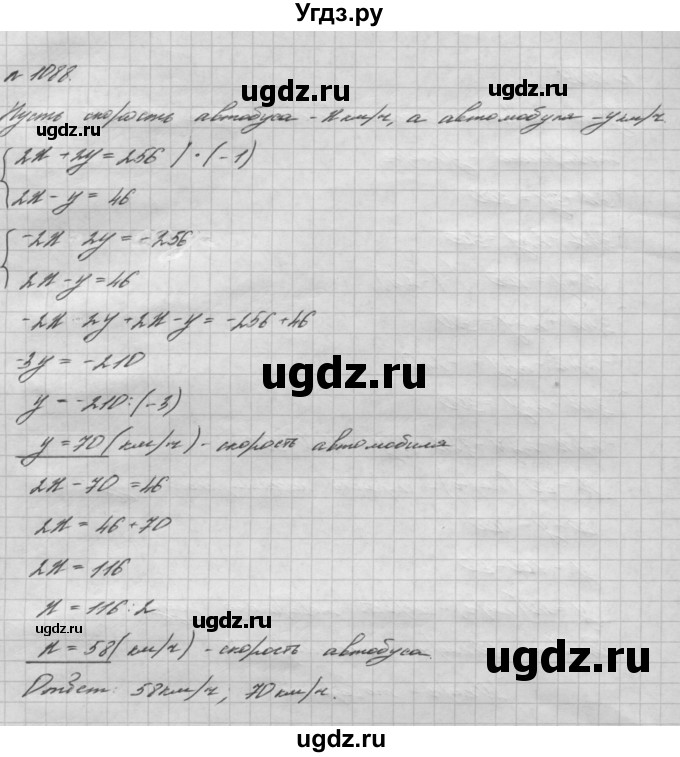 Угдз.ру
№ 1088.
ugdz.ru ugdz.ru
Пусть скорость автобуса - x км/ч, а автомобиля - y км/ч.
ugdz.ru
2x + 2y = 256 | · (-1)
2x - y = 46
-2x - 2y = -256
2x - y = 46
-2x - 2y + 2x - y = -256 + 46
-3y = -210
ugdz.ru
y = -210 : (-3)
y = 70 (км/ч) - скорость автомобиля
2x - 70 = 46
2x = 46 + 70
2x = 116
x = 116 : 2
ugdz.ru ugdz.ru
x = 58 (км/ч) - скорость автобуса.
ugdz.ru
Ответ: 58 км/ч; 70 км/ч.
ugdz.ru